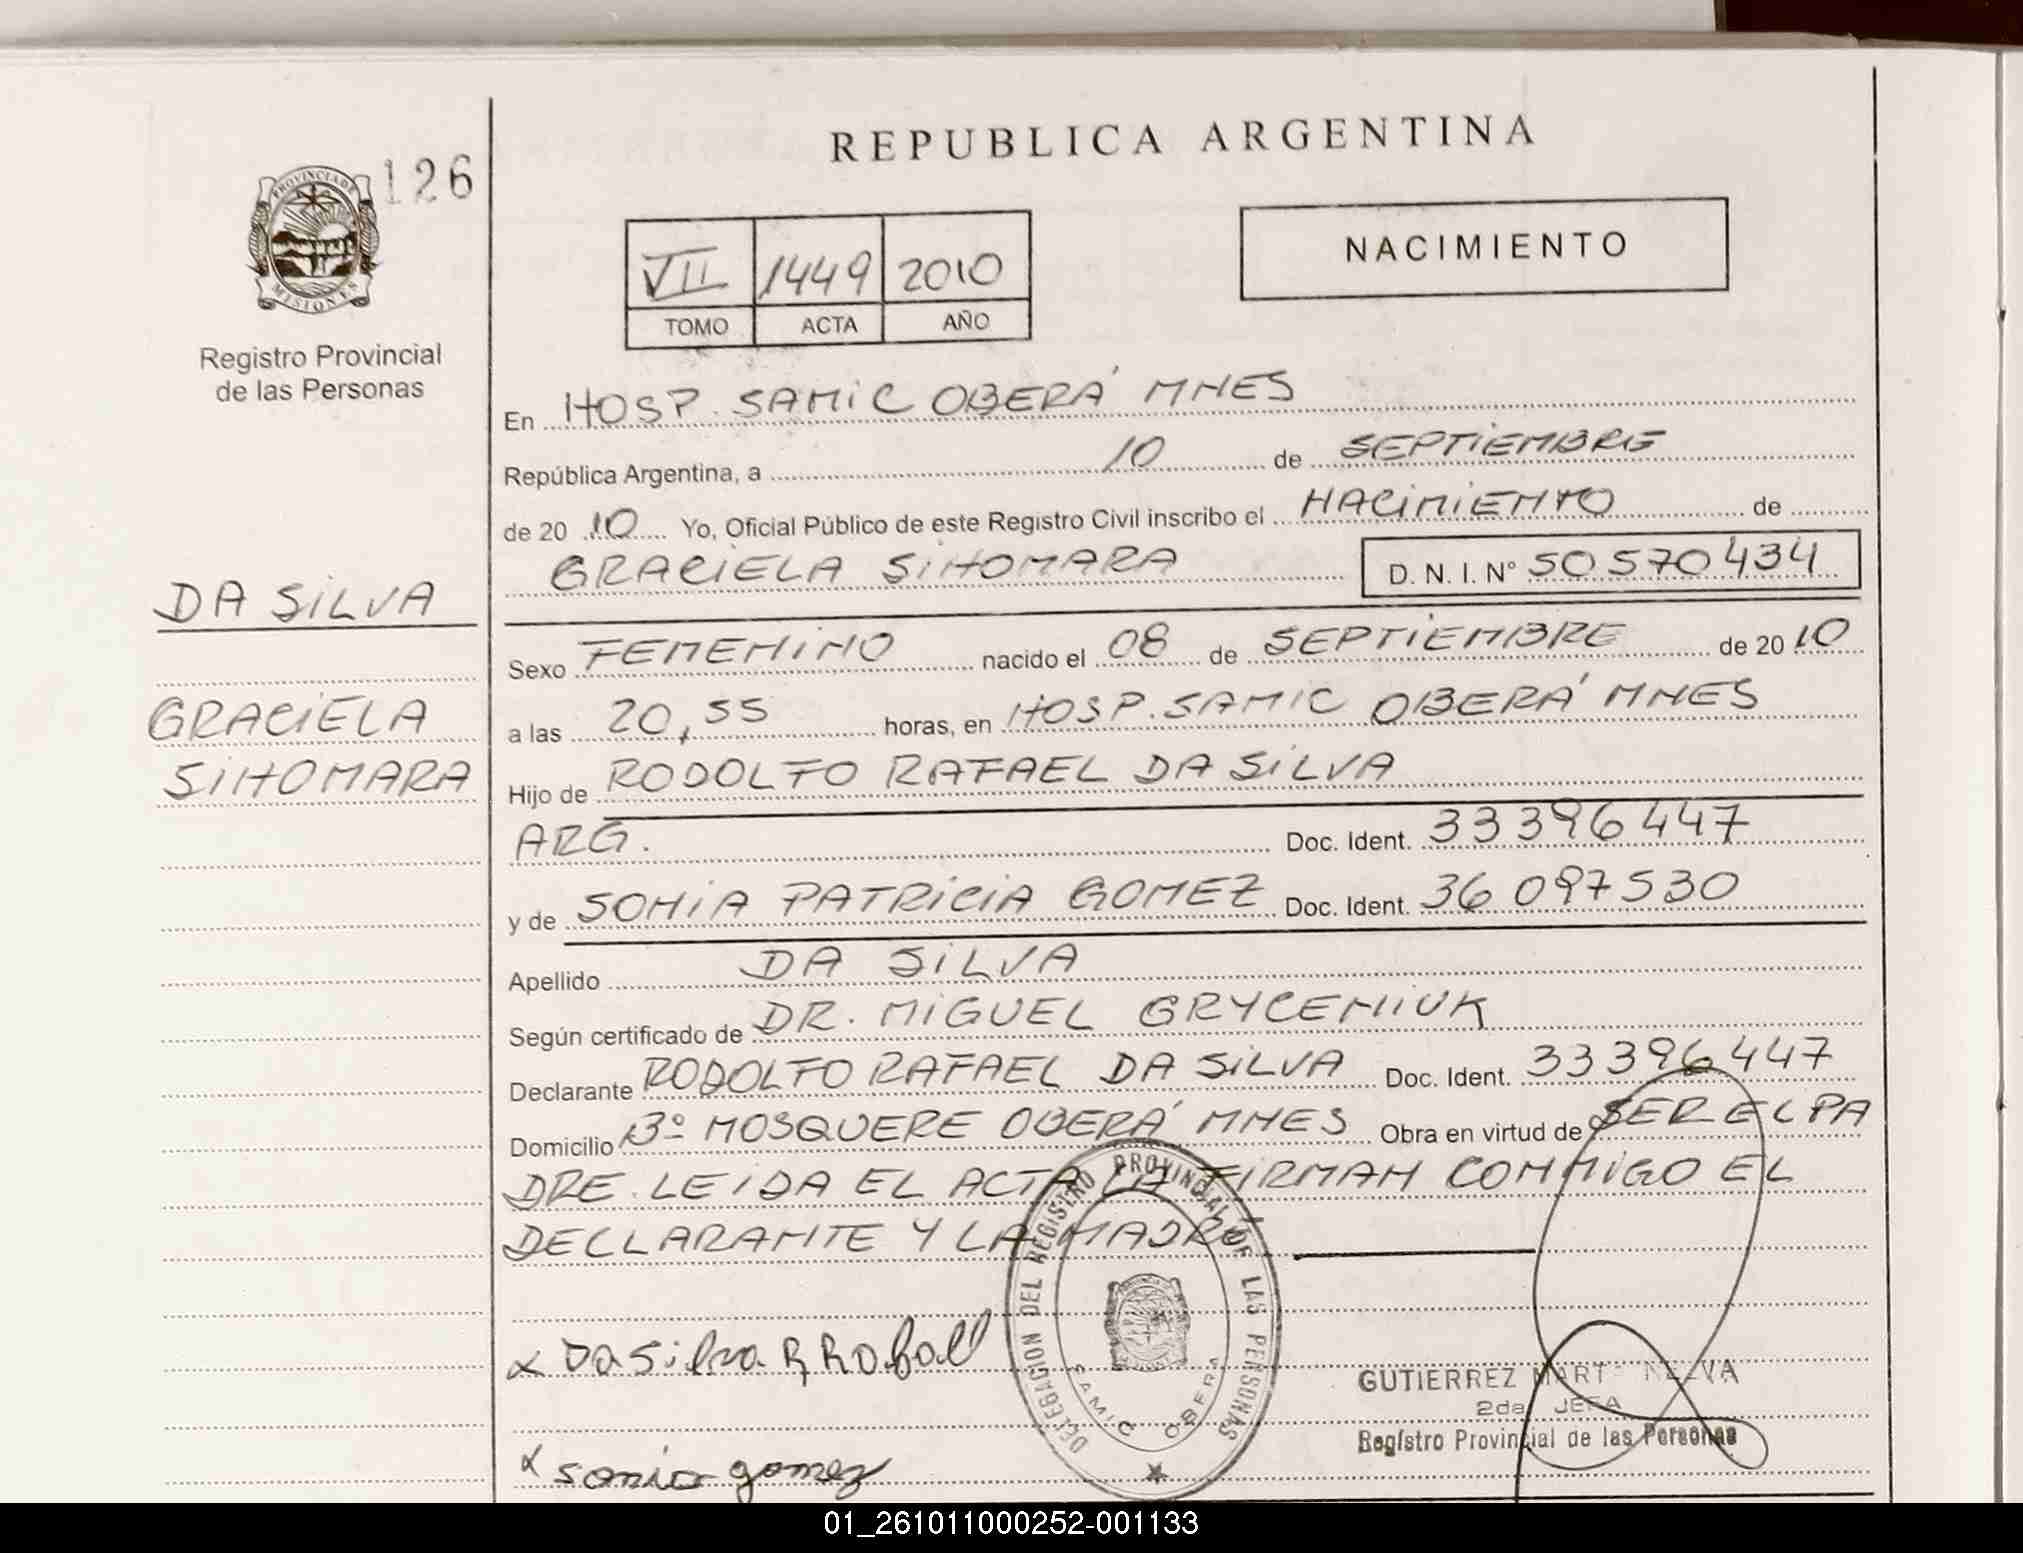 REPUBLICA ARGENTINA
PROVINCIA DE MISIONES
126
Registro Provincial
de las Personas
VII 1449 2010
TOMO ACTA AÑO
NACIMIENTO
En HOSP. SAMIC OBERÁ MNES
República Argentina, a 10 de SEPTIEMBRE
de 20 10 Yo, Oficial Público de este Registro Civil inscribo el NACIMIENTO de
GRACIELA SIHOMARA D. N. I. N° 50570434
DA SILVA
GRACIELA
SIHOMARA
Sexo FEMENINO nacido el 08 de SEPTIEMBRE de 20 10
a las 20,55 horas, en HOSP. SAMIC OBERÁ MNES
Hijo de RODOLFO RAFAEL DA SILVA
ARG. Doc. Ident. 33396447
y de SONIA PATRICIA GOMEZ Doc. Ident. 36097530
Apellido DA SILVA
Según certificado de DR. MIGUEL GRYCENIUK
Declarante RODOLFO RAFAEL DA SILVA Doc. Ident. 33396447
Domicilio B° MOSQUERE OBERÁ MNES Obra en virtud de SER EL PA
DRE. LEIDA EL ACTA LA FIRMAN CONMIGO EL
DECLARANTE Y LA MADRE
x Da Silva R Rafael
x sonia gomez
DELEGACION DEL REGISTRO PROVINCIAL DE LAS PERSONAS
SAMIC OBERA
GUTIERREZ NELVA
2da JEFA
Registro Provincial de las Personas
01_261011000252-001133